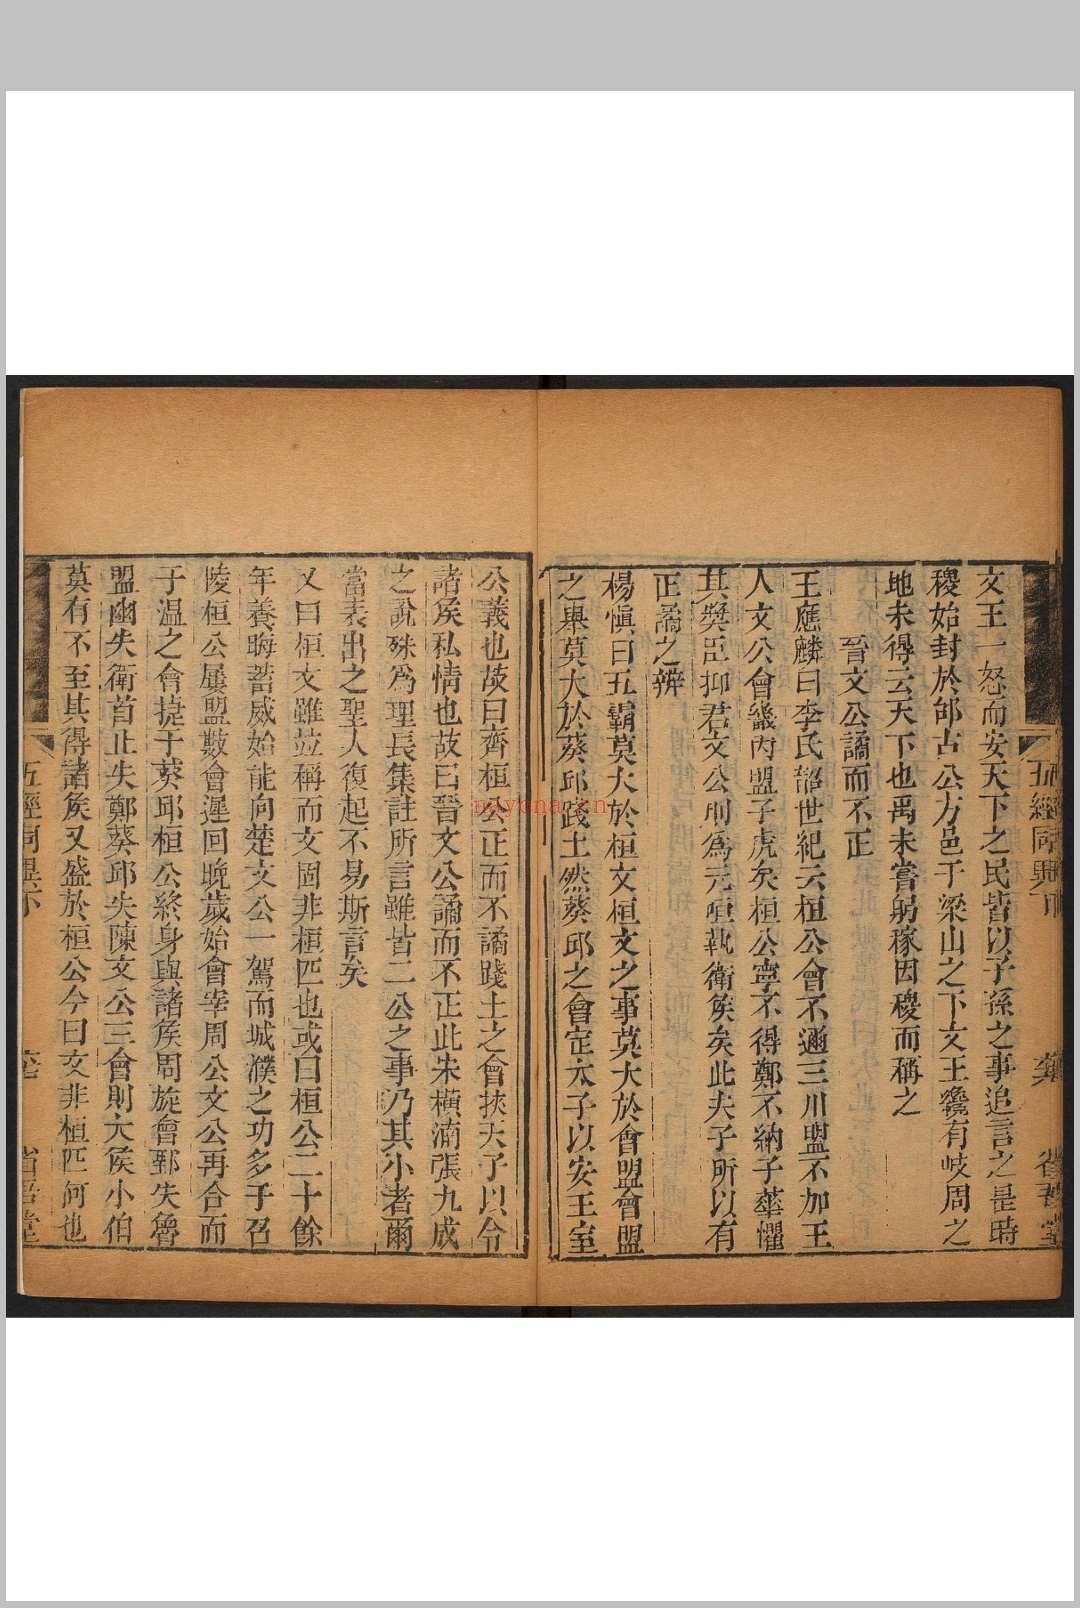 文王一怒而安天下之民皆以子孫之事追言之是時
稷始封於邰古公方邑于梁山之下文王纔有岐周之
地未得云天下也禹未嘗躬稼因稷而稱之
晉文公譎而不正
王應麟曰李氏韶世紀云桓公會不邇三川盟不加王
人文公會畿內盟子虎矣桓公寧不得鄭不納子華懼
其獎臣抑君文公則為元咺執衛侯矣此夫子所以有
正譎之辨
楊慎曰五霸莫大於桓文桓文之事莫大於會盟會盟
之舉莫大於葵邱踐土然葵邱之會定太子以安王室
公義也故曰齊桓公正而不譎踐土之會挾天子以令
諸侯私情也故曰晉文公譎而不正此朱橫浦張九成
之說殊為理長集註所言雖皆二公之事乃其小者爾
當表出之聖人復起不易斯言矣
又曰桓文雖竝稱而文固非桓匹也或曰桓公二十餘
年養晦蓄威始能向楚文公一駕而城濮之功多于召
陵桓公屢盟數會遲回晚歲始會宰周公文公再合而
于溫之會捷于葵邱桓公終身與諸侯周旋會鄄失魯
盟幽失衛首止失鄭葵邱失陳文公三會則大侯小伯
莫有不至其得諸侯又盛於桓公今曰文非桓匹何也
五經同異下
省吾堂
nayona.cn